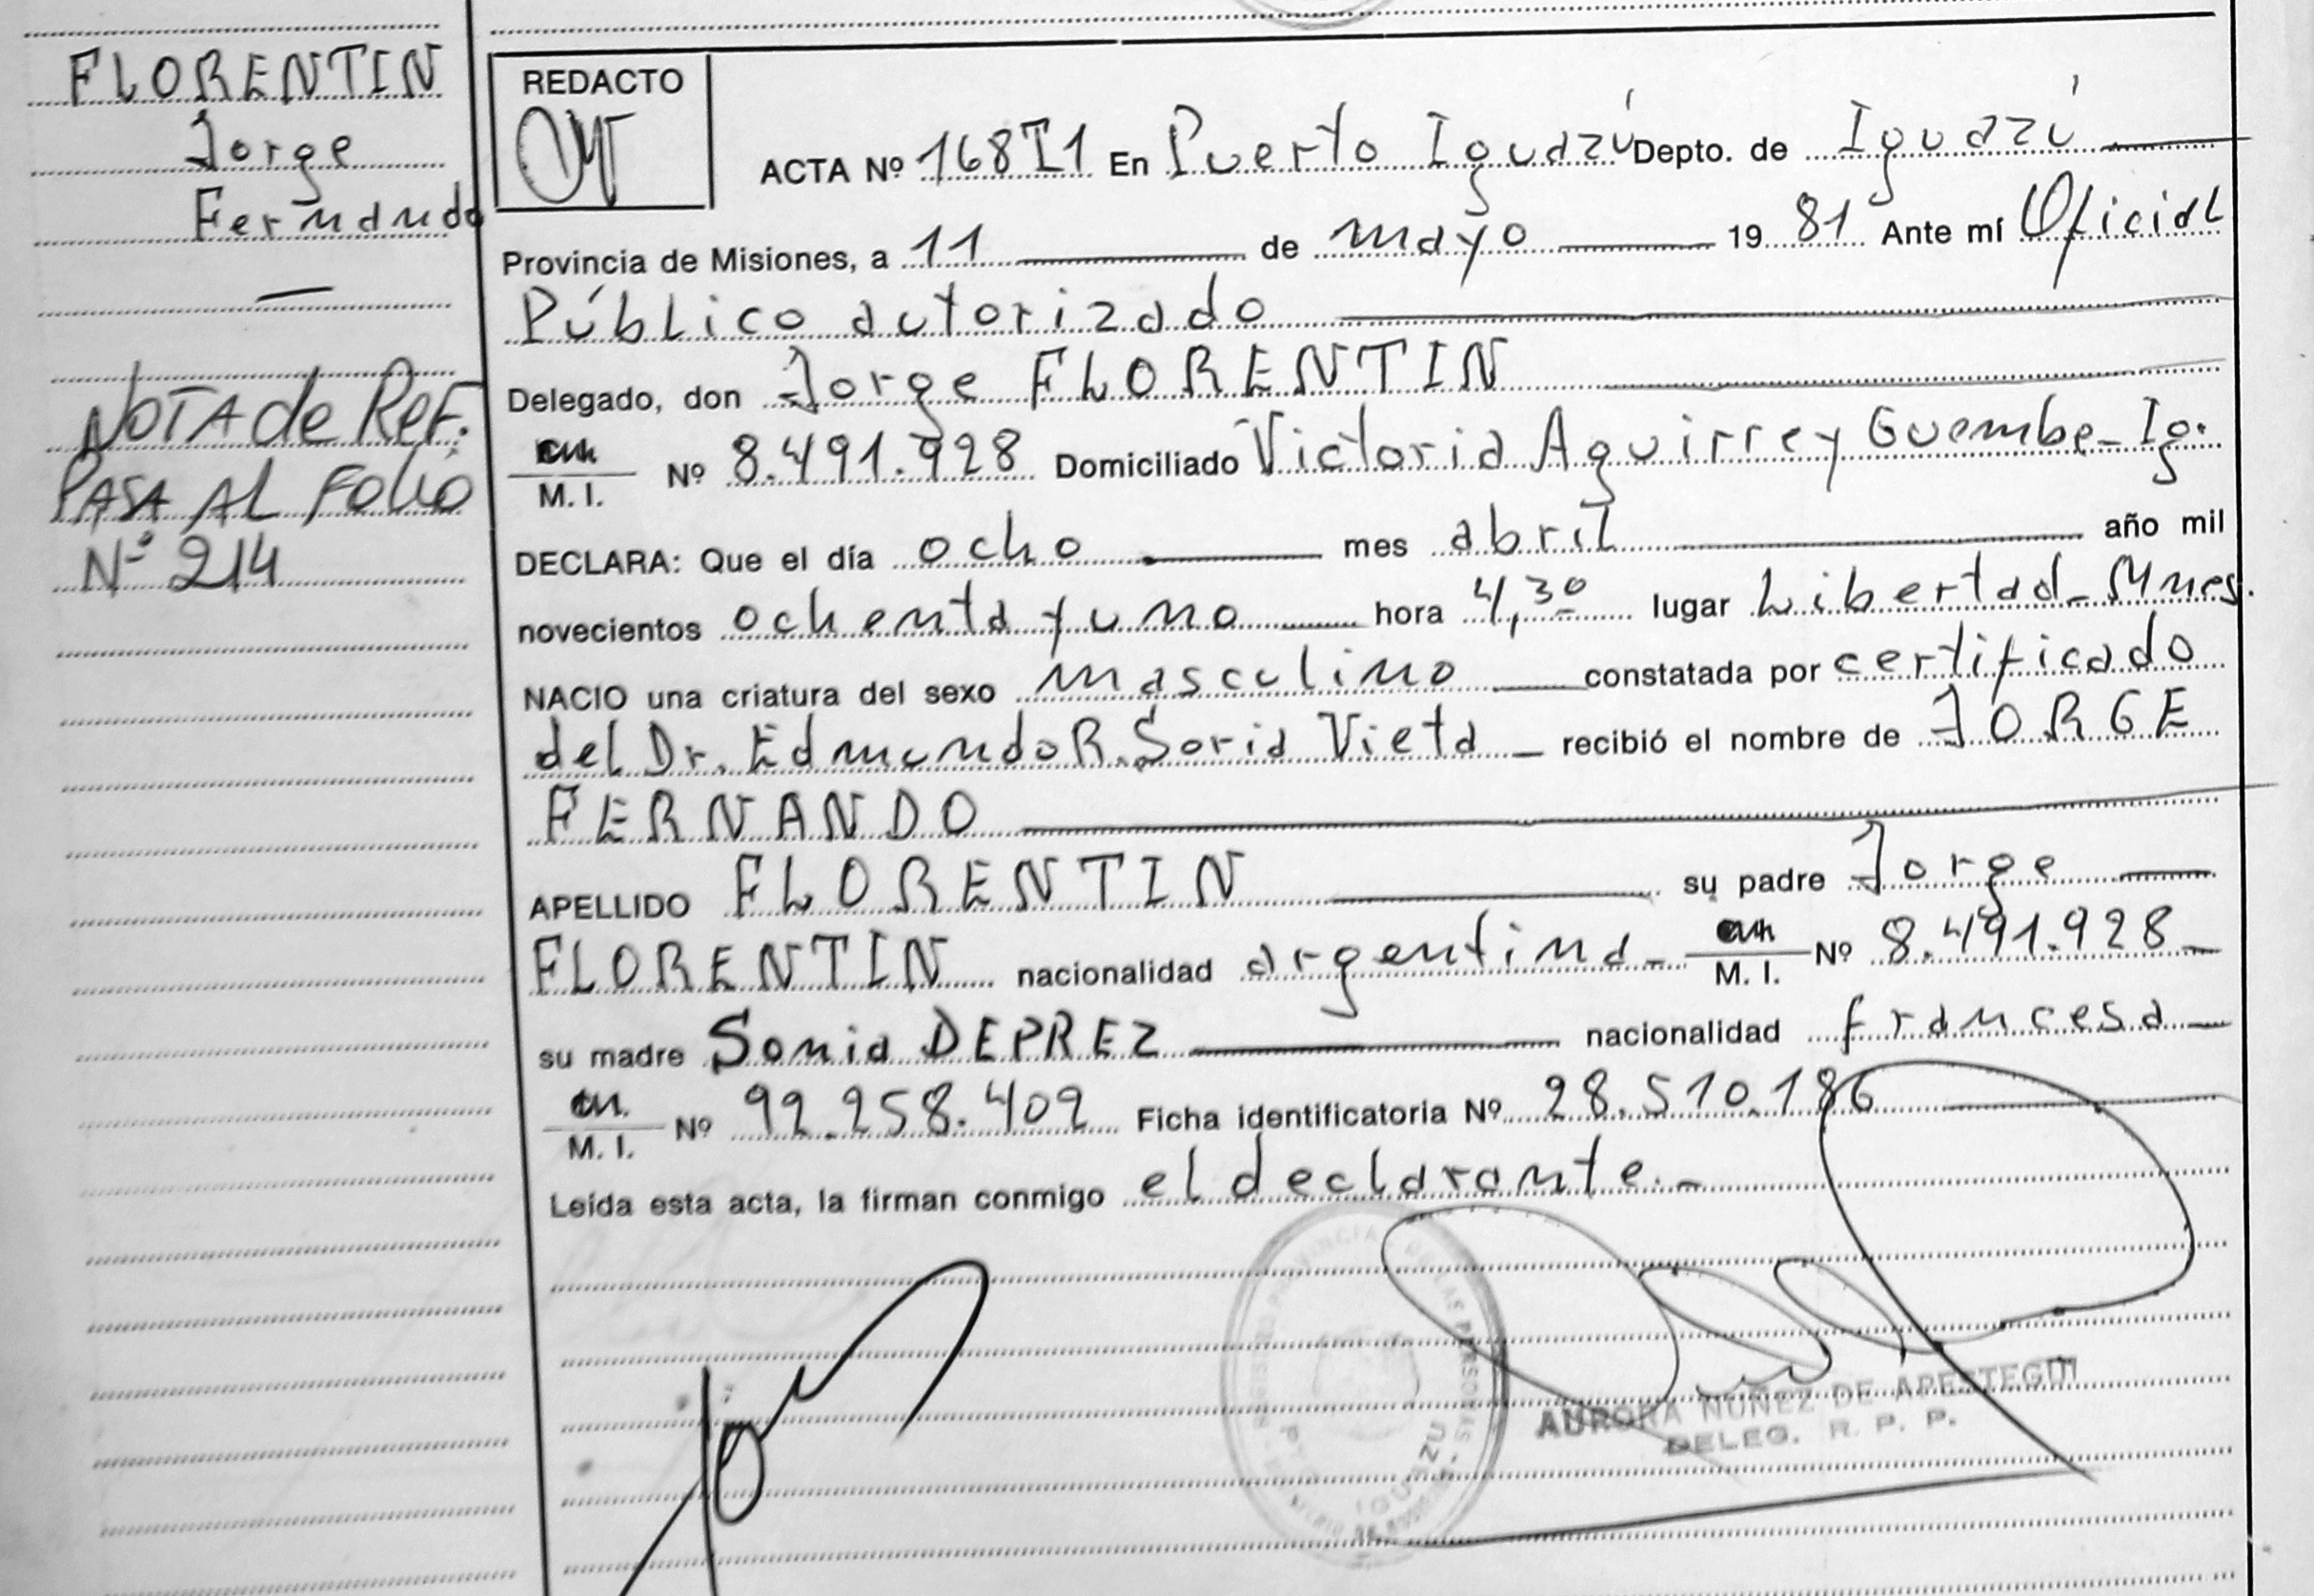 FLORENTIN
Jorge
Fernando
NOTA de REF.
PASA AL FOLIO
Nº 214
REDACTO
ACTA Nº 168T1 En Puerto Iguazú Depto. de Iguazú
Provincia de Misiones, a 11 de mayo 19 81 Ante mí Oficial
Público autorizado
Delegado, don Jorge FLORENTIN
M. I. Nº 8.491.928 Domiciliado Victoria Aguirre y Guembe - Ig.
DECLARA: Que el día ocho mes abril año mil
novecientos ochenta y uno hora 4,30 lugar Libertad - Mnes.
NACIO una criatura del sexo masculino constatada por certificado
del Dr. Edmundo R. Soria Vieta - recibió el nombre de JORGE
FERNANDO
APELLIDO FLORENTIN su padre Jorge
FLORENTIN nacionalidad argentina - M. I. Nº 8.491.928 -
su madre Sonia DEPREZ nacionalidad francesa -
M. I. Nº 92.258.402 Ficha identificatoria Nº 28.510.186
Leída esta acta, la firman conmigo el declarante. -
AURORA NUÑEZ DE APESTEGUI
DELEG. R. P. P.
IGUAZU